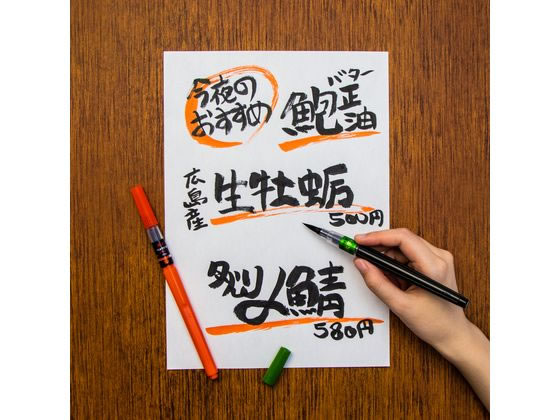 今夜の
おすすめ
バター
正油
鮑
広島産
生牡蛎
500円
炙り〆鯖
580円